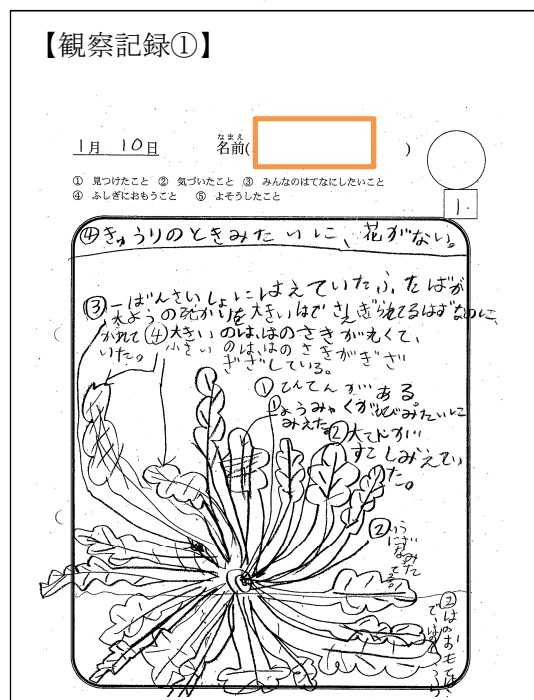 【観察記録①】
1月 10日
なまえ
名前( )
① 見つけたこと ② 気づいたこと ③ みんなのはてなにしたいこと
④ ふしぎにおもうこと ⑤ よそうしたこと
1.
④きゅうりのときみたいに、花がない。
③一ばんさいしょにはえていたふたばが
太ようのひかりを大きいはでさえぎられてるはずなのに、
かれて
いた。
④大きいのは、はのさきがまるくて、
小さいのは、はのさきがぎざ
ぎざしている。
①てんてんがある。
①ようみゃくがゆびみたいに
みえた。
②大こんが
すこしみえてい
た。
②
②はのおもては